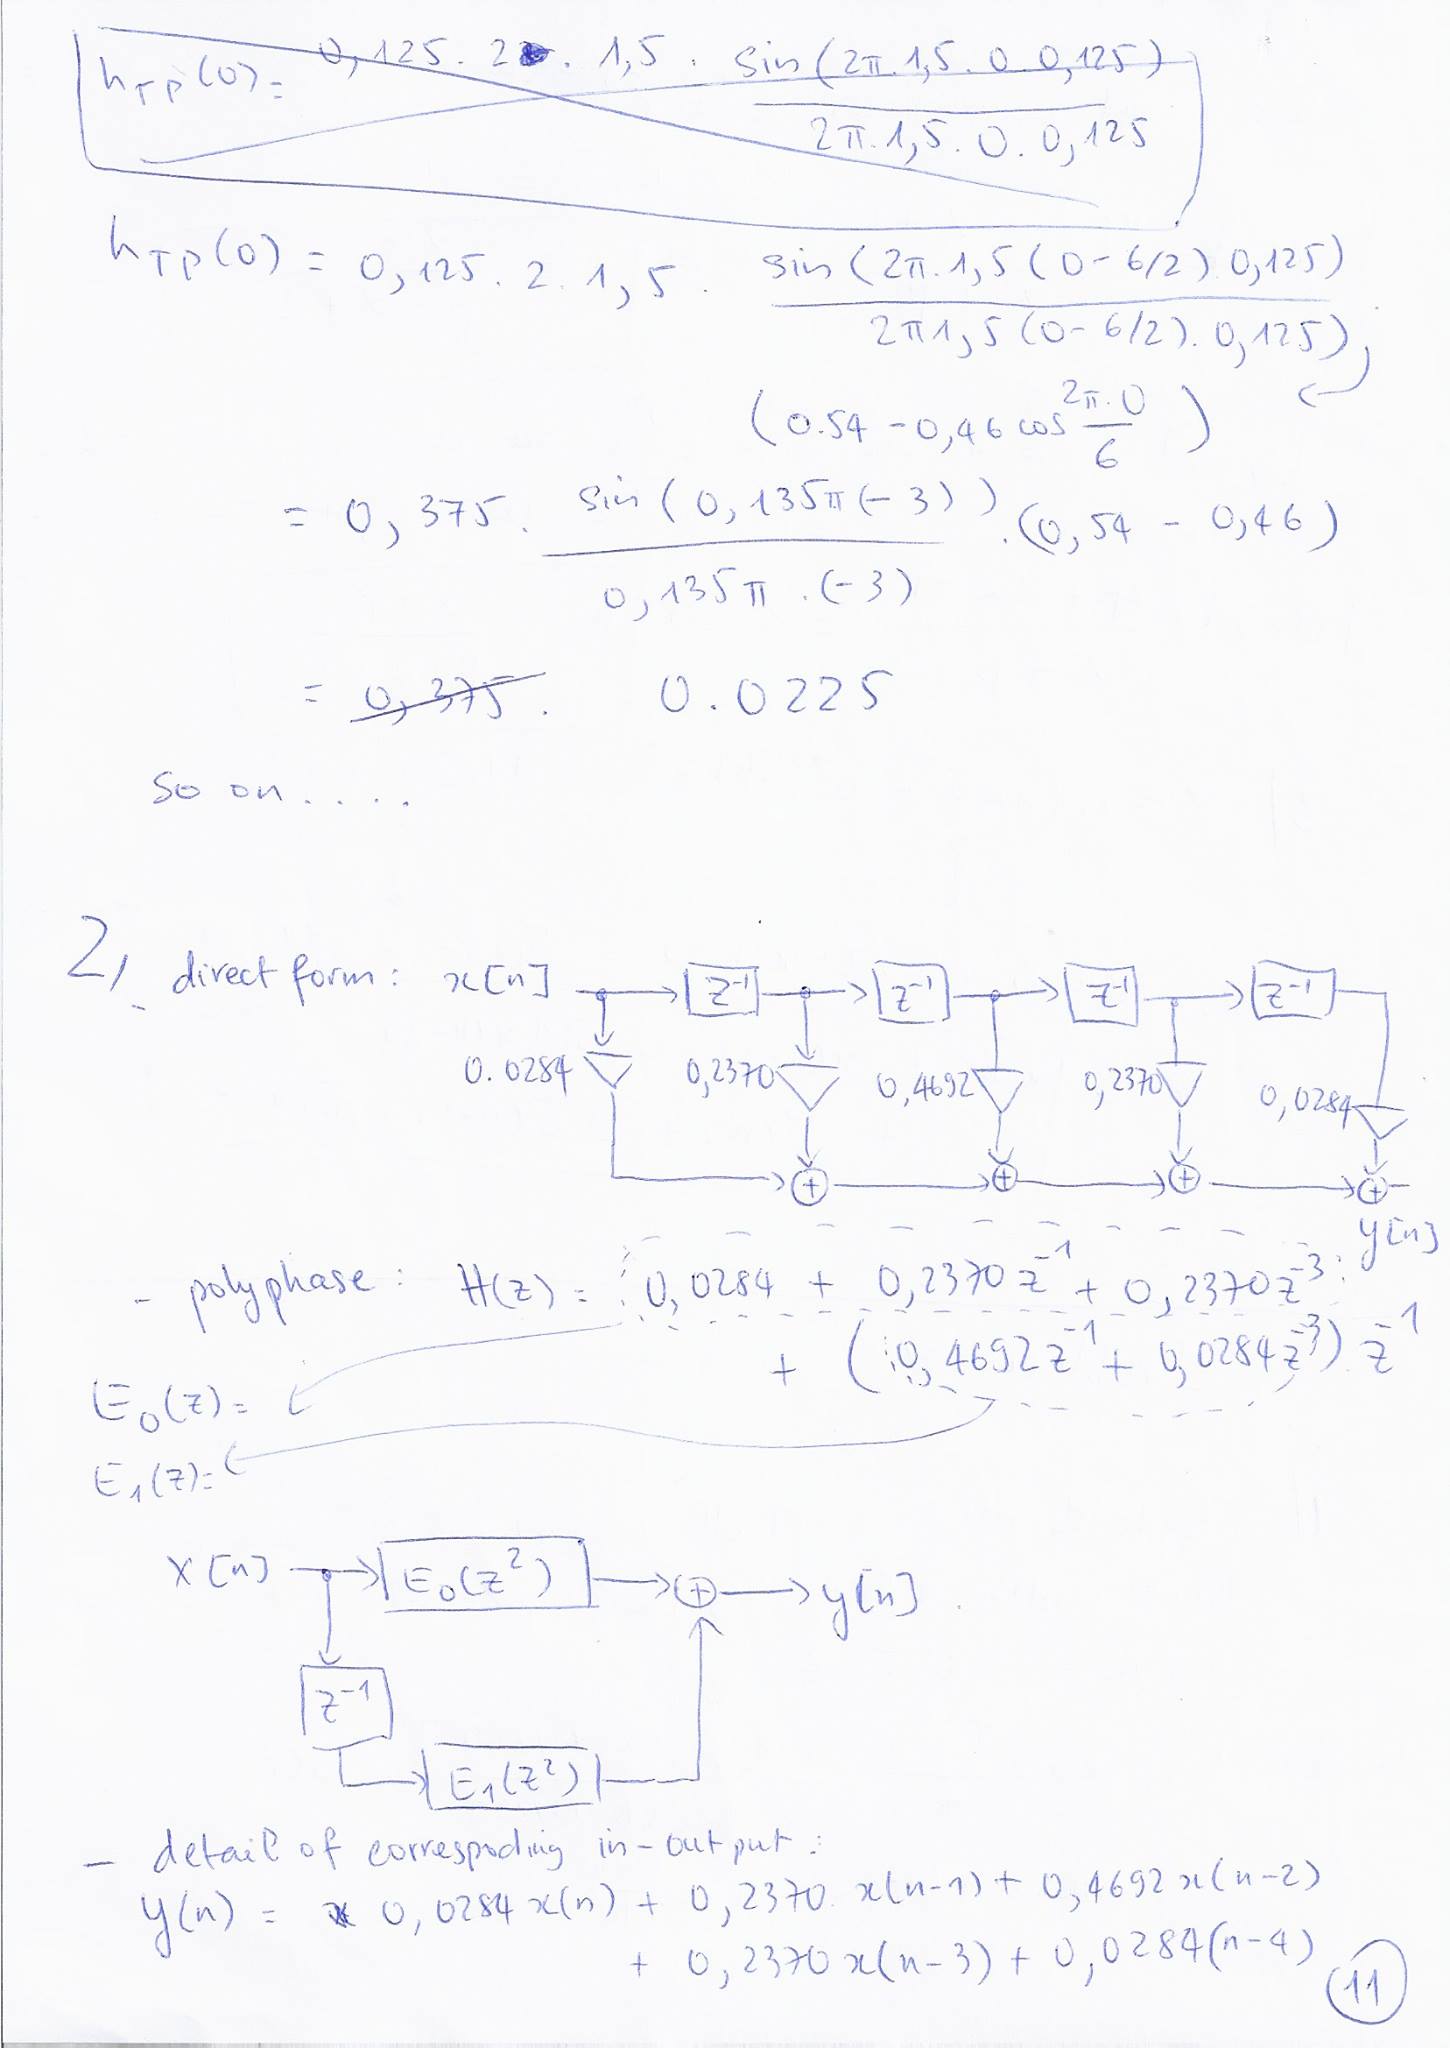 h_TP(0) = 0,125 . 2 . 1,5 . sin(2π.1,5.0 0,125)
2π.1,5.0.0,125
h_TP(0) = 0,125 . 2 . 1,5 . sin(2π.1,5(0-6/2) 0,125)
2π1,5(0-6/2).0,125)
(0.54 - 0,46 cos 2π.0
6 )
= 0,375 . sin(0,135π(-3)) . (0,54 - 0,46)
0,135π.(-3)
= 0,375. 0.0225
so on.....
2, direct form: x[n] z⁻¹ z⁻¹ z⁻¹ z⁻¹
0.0284 0,2370 0,4692 0,2370 0,0284
+ + + +
y[n]
- polyphase: H(z) = 0,0284 + 0,2370z⁻¹ + 0,2370z⁻³
+ (0,4692z⁻¹ + 0,0284z⁻³) z⁻¹
E₀(z) =
E₁(z) =
x[n] E₀(z²) + y[n]
z⁻¹
E₁(z²)
- detail of correspoding in-output:
y(n) = 0,0284 x(n) + 0,2370 x(n-1) + 0,4692 x(n-2)
+ 0,2370 x(n-3) + 0,0284(n-4)
11